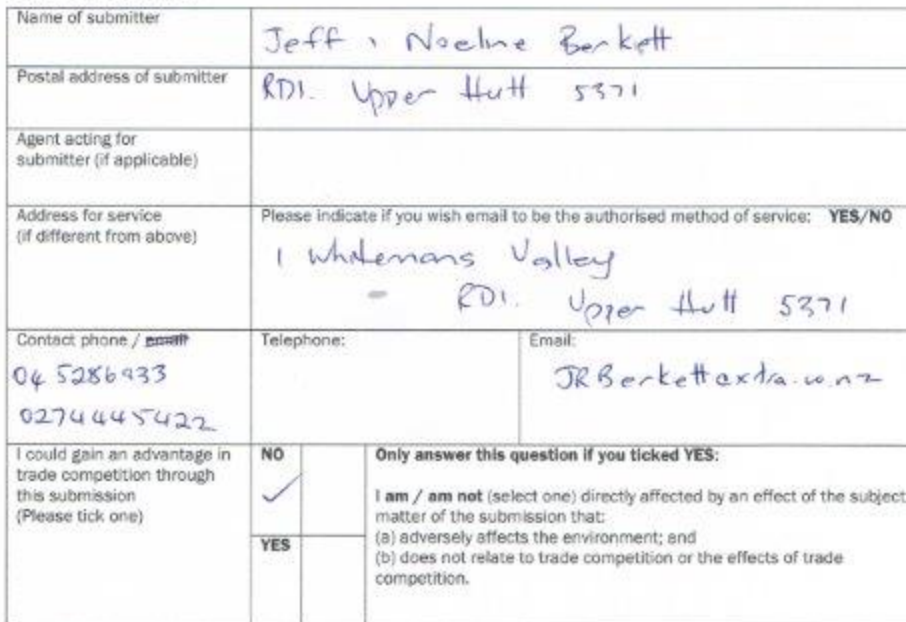 Name of submitter
Jeff , Noeline Berkett
Postal address of submitter
RD1. Upper Hutt 5371
Agent acting for
submitter (if applicable)
Address for service
(if different from above)
Please indicate if you wish email to be the authorised method of service: YES/NO
1 Whitemans Valley
RD1. Upper Hutt 5371
Contact phone / email
04 5286933
02744445422
Telephone:
Email:
JRBerkett@xtra.co.nz
I could gain an advantage in
trade competition through
this submission
(Please tick one)
NO
✓
YES
Only answer this question if you ticked YES:
I am / am not (select one) directly affected by an effect of the subject
matter of the submission that:
(a) adversely affects the environment; and
(b) does not relate to trade competition or the effects of trade
competition.